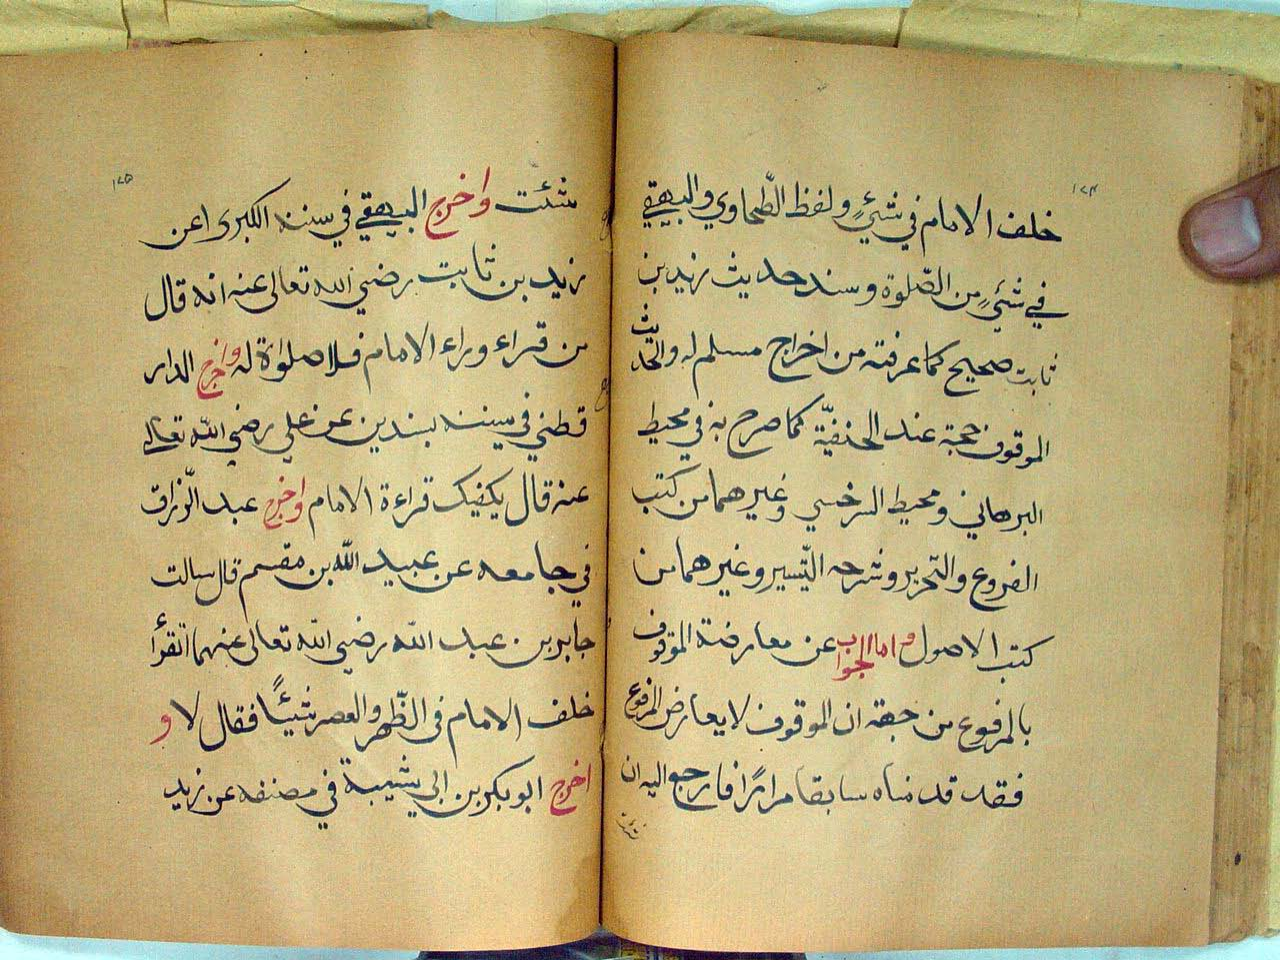 ١٧٤
خلف الامام في شيءٍ ولفظ الطّحاوي والبيهقي
في شيءٍ من الصّلوة وسند حديث زيد بن
ثابت صحيح كما عرفته من اخراج مسلم له والحديث
الموقوف حجة عند الحنفيّة كما صرح به في محيط
البرهاني ومحيط السرخسي وغيرهما من كتب
الفروع والتحرير وشرحه التّيسير وغيرهما من
كتب الاصول واما الجواب عن معارضة الموقوف
بالمرفوع من جهة ان الموقوف لا يعارض المرفوع
فقد قدمناه سابقا مرارًا فارجع اليه ان
شئت
١٧٥
شئت واخرج البيهقي في سننه الكبرى عن
زيد بن ثابت رضي الله تعالى عنه انه قال
من قراء وراء الامام فلا صلوٰة له واخرج الدار
قطني في سننه بسندين عن علي رضي الله تعالى
عنه قال يكفيك قراءة الامام واخرج عبد الرّزاق
في جامعه عن عبيد الله بن مقسم قال سالت
جابر بن عبد الله رضي الله تعالى عنهما اتقرأ
خلف الامام في الظّهر والعصر شيئًا فقال لا و
اخرج ابو بكر بن ابي شيبة في مصنفه عن زيد